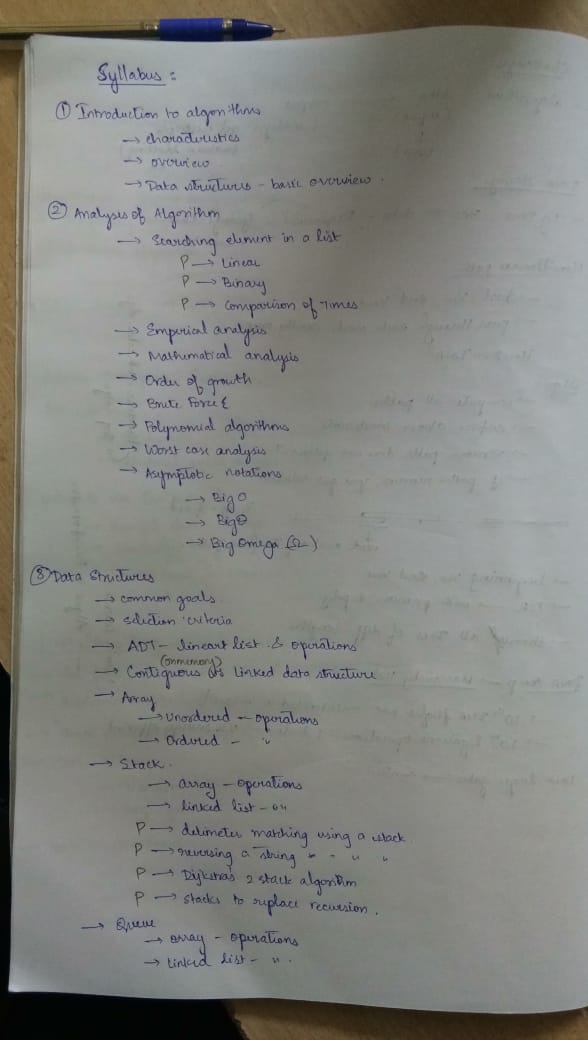 Syllabus :
① Introduction to algorithms
→ characteristics
→ overview
→ Data structures - basic overview.
② Analysis of Algorithm
→ Searching element in a list
P → Linear
P → Binary
P → Comparison of Times
→ Emperical analysis
→ Mathematical analysis
→ Order of growth
→ Brute Force
→ Polynomial algorithms
→ Worst case analysis
→ Asymptotic notations
→ Big O
→ Big Θ
→ Big Omega (Ω)
③ Data Structures
→ common goals
→ selection criteria
→ ADT - lineart list & operations
(on memory)
→ Contiguous vs linked data structure
→ Array
→ Unordered - operations
→ Ordered - "
→ Stack.
→ array - operations
→ linked list -
P → delimeter matching using a stack
P → reversing a string " " " "
P → Dijkstra's 2 stack algorithm
P → stacks to replace recursion.
→ Queue
→ array - operations
→ Linked list - ".